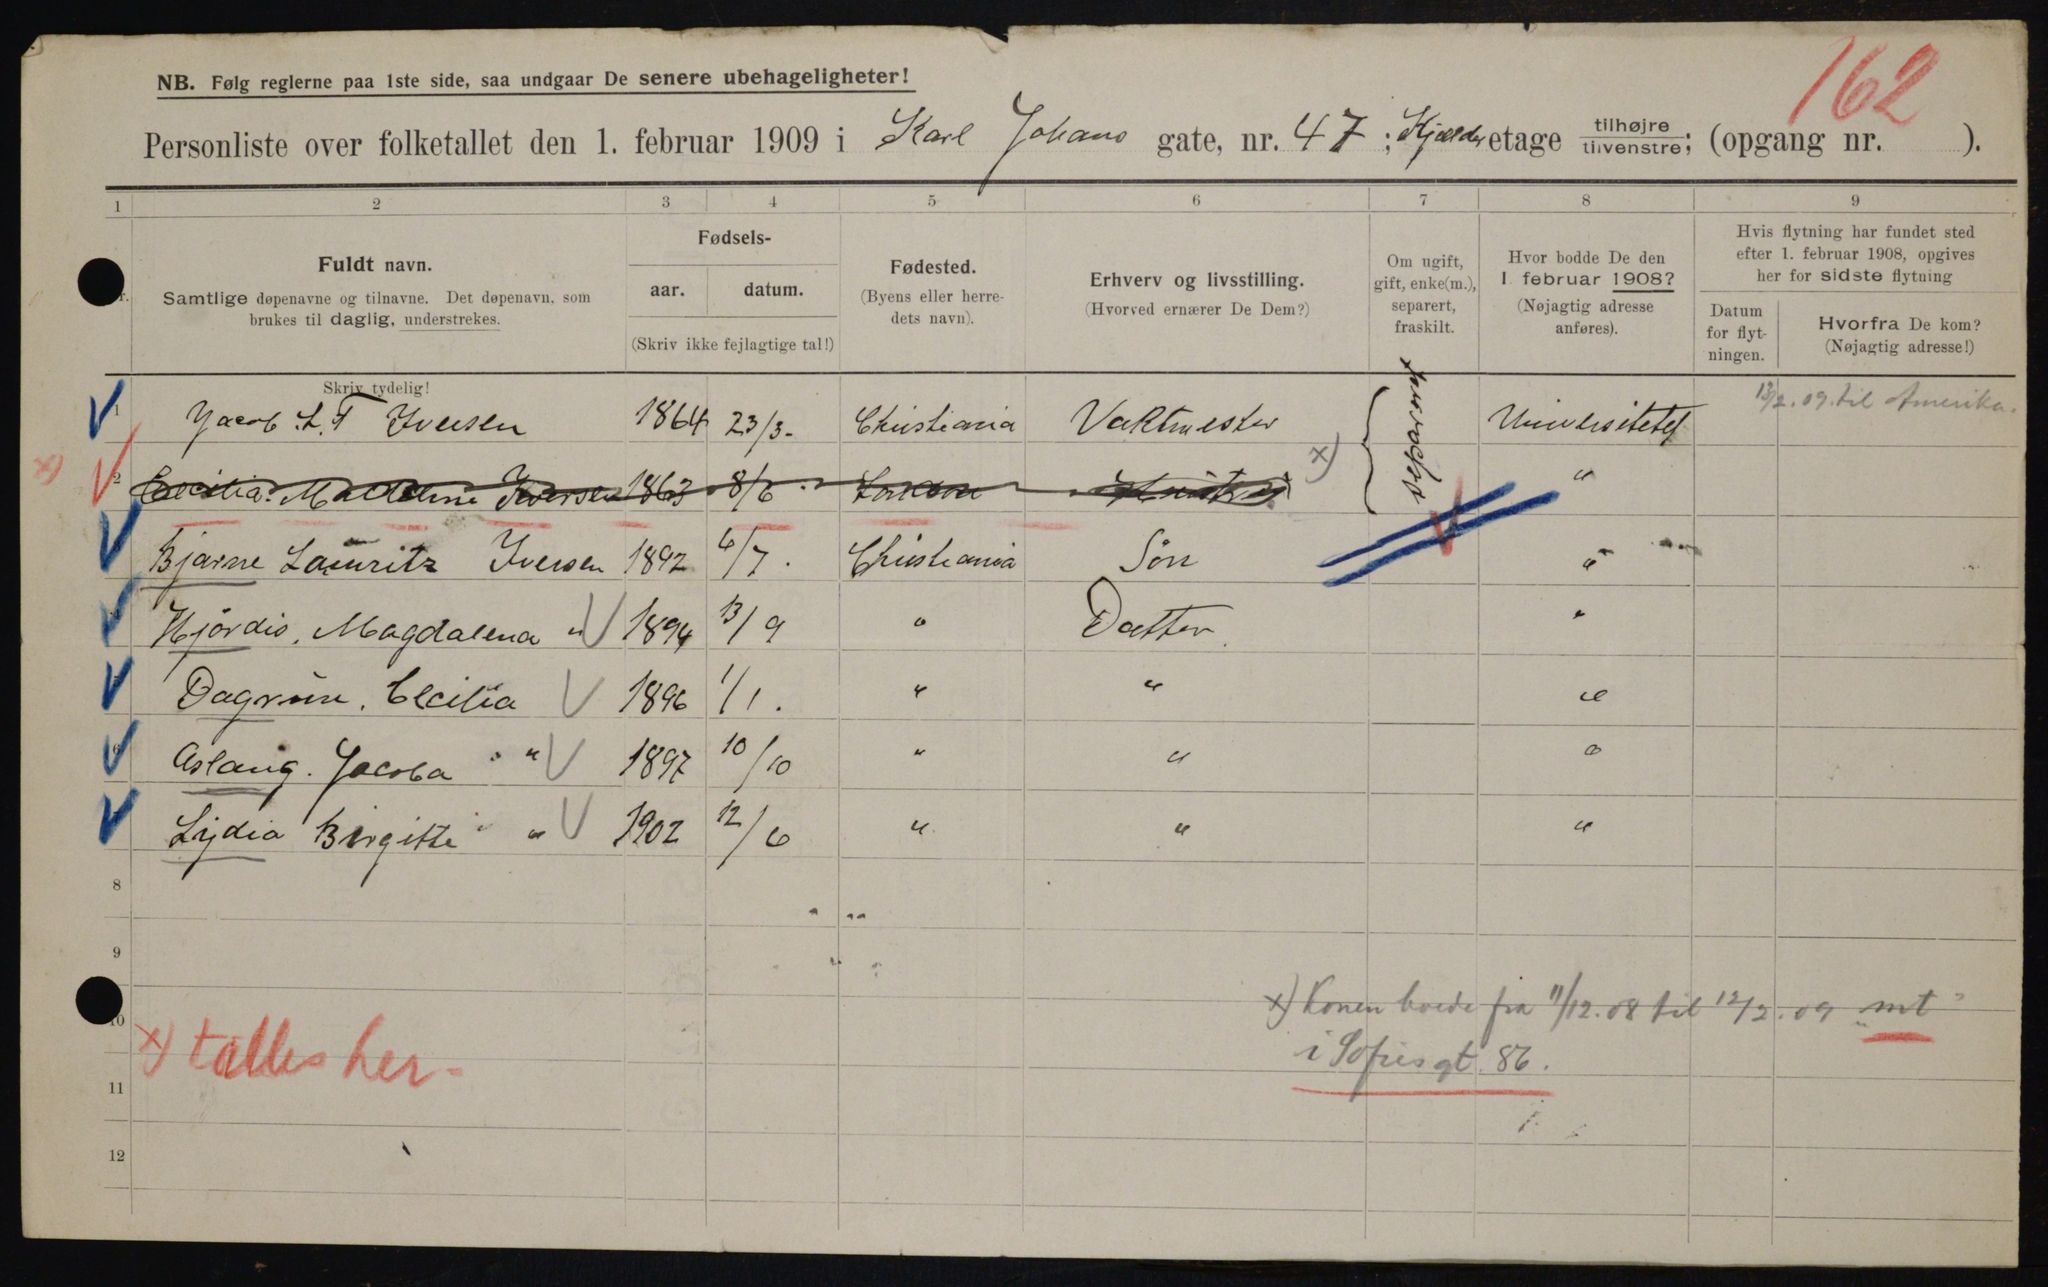 162
NB. Følg reglerne paa 1ste side, saa undgaar De senere ubehageligheter!
Personliste over folketallet den 1. februar 1909 i Karl Johans gate, nr. 47; Kjælder etage tilhøjre tilvenstre; (opgang nr. ).
1 2 3 4 5 6 7 8 9
Fuldt navn.
Samtlige døpenavne og tilnavne. Det døpenavn, som
brukes til daglig, understrekes.
Skriv tydelig!
Fødsels-
aar. datum.
(Skriv ikke fejlagtige tal!)
Fødested.
(Byens eller herre-
dets navn).
Erhverv og livsstilling.
(Hvorved ernærer De Dem?)
Om ugift,
gift, enke(m.),
separert,
fraskilt.
Hvor bodde De den
1 februar 1908?
(Nøjagtig adresse
anføres).
Hvis flytning har fundet sted
efter 1. februar 1908, opgives
her for sidste flytning
Datum
for flyt-
ningen.
Hvorfra De kom?
(Nøjagtig adresse!)
1 Jacob L. T Iversen 1864 23/3- Christiania Vaktmester Universitetet 13/2.09 til Amerika.
x) 2 Cecilia Iversen 1863 8/6 x) "
Bjarne Lauritz Iversen 1892 6/7. Christiania Søn "
Hjördis. Magdalena " 1894 13/9 " Datter "
Dagrun. Cecilia 1896 1/1. " " "
6 Aslaug. Jacoba " 1897 10/10 " " "
Lydia Birgitte " 1902 12/6 " " "
8
9
10
x) tælles her-
x) Konen boede fra 11/12.08 til 12/2.09 "mt"
i Sofiesgt. 86.
11
12